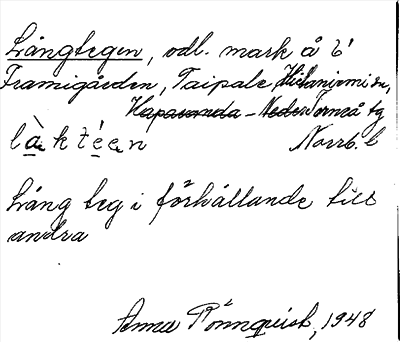 Långtegen, odl. mark å b'
Framigården, Taipale, Hietaniemi sn,
Haparanda - Neder Torneå tg
l à k t é e n Norrb. l
Lång teg i förhållande till
andra
Anna Rönnquist, 1948